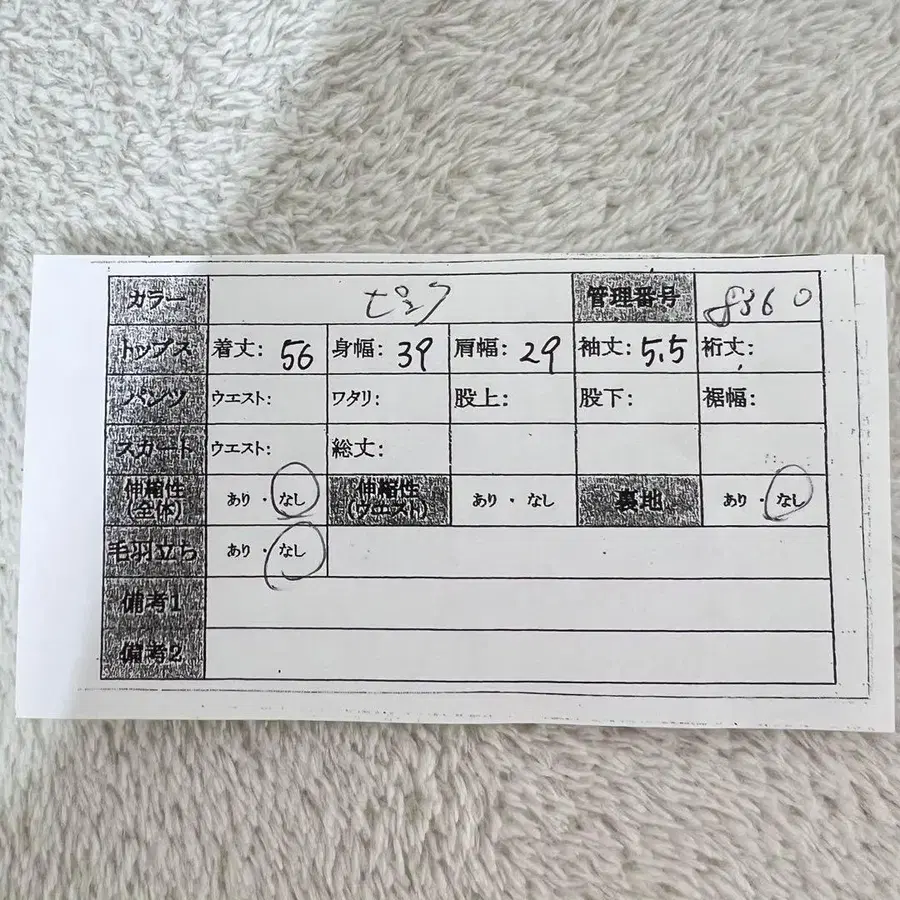 カラー ピンク 管理番号 8360
トップス 着丈: 56 身幅: 39 肩幅: 29 袖丈: 5.5 裄丈:
パンツ ウエスト: ワタリ: 股上: 股下: 裾幅:
スカート ウエスト: 総丈:
伸縮性 (全体) あり・なし 伸縮性 (ウエスト) あり・なし 裏地 あり・なし
毛羽立ち あり・なし
備考1
備考2